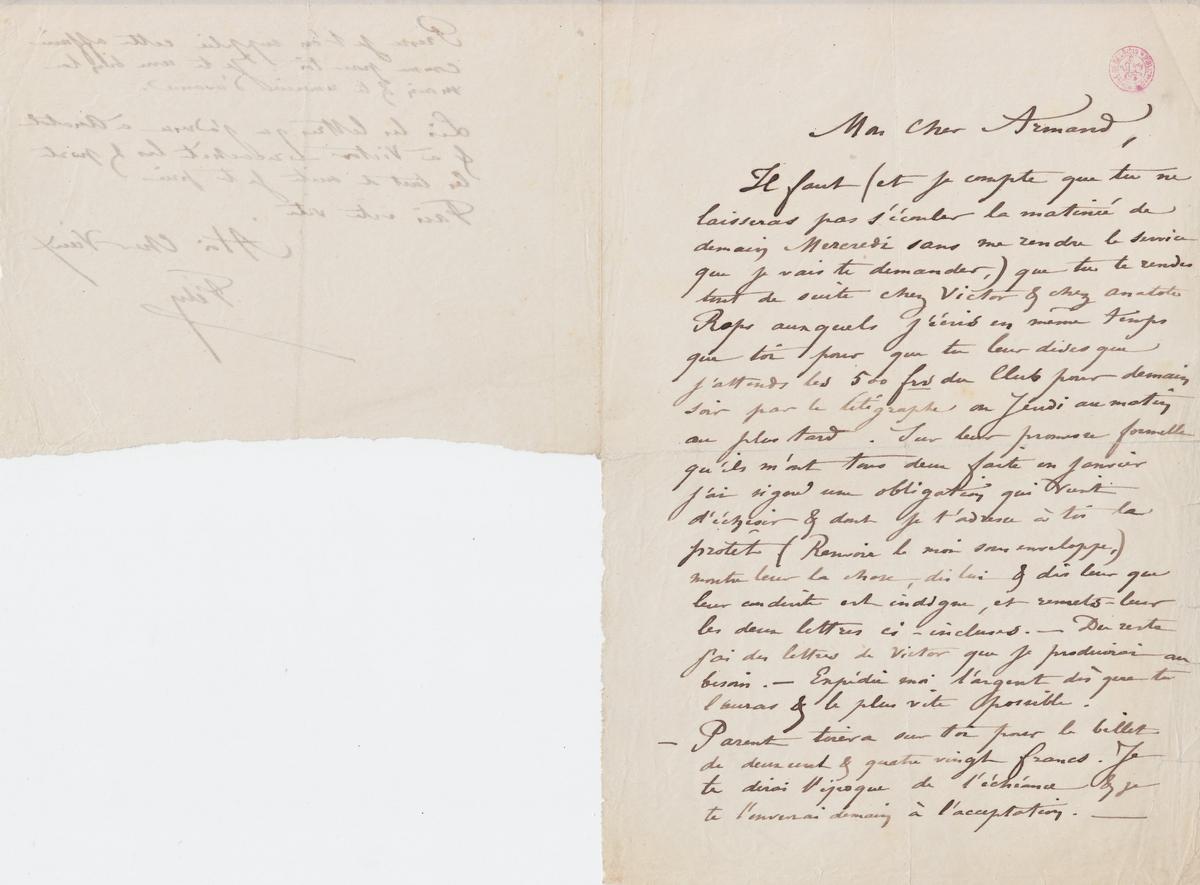 Mon cher Armand,
Il faut (et je compte que tu ne
laisseras pas s'écouler la matinée de
demain Mercredi sans me rendre le service
que je vais te demander,) que tu te rendes
tout de suite chez Victor & chez anatole
Rops auxquels j'écris en même temps
que toi pour que tu leur dises que
j'attends les 500 frs du Club pour demain
soir par le télégraphe ou Jeudi au matin
au plus tard. Sur leur promesse formelle
qu'ils m'ont tous deux faite en janvier
j'ai signé une obligation qui vient
d'échoir & dont je t'adresse à toi la
protêt (Renvoie le moi sous enveloppe,)
montre leur la chose, dis lui & dis leur que
leur conduite est indigne, et remets-leur
les deux lettres ci-incluses. — Du reste
j'ai des lettres de Victor que je produirai au
besoin. — Expédie moi l'argent dès que tu
l'auras & le plus vite possible.
— Parent tirera sur toi pour le billet
de deux cent & quatre vingt francs. Je
te dirai l'époque de l'échéance & je
te l'enverrai demain à l'acceptation. —
Prends je t'en supplie cette affaire
comme pour toi
mais & te remercie d'avance.
Lis les lettres que j'adresse à Anatole
& à Victor & porte
les tout de suite je te prie.
Fais vite vite.
A toi Cher Vieux
Fély